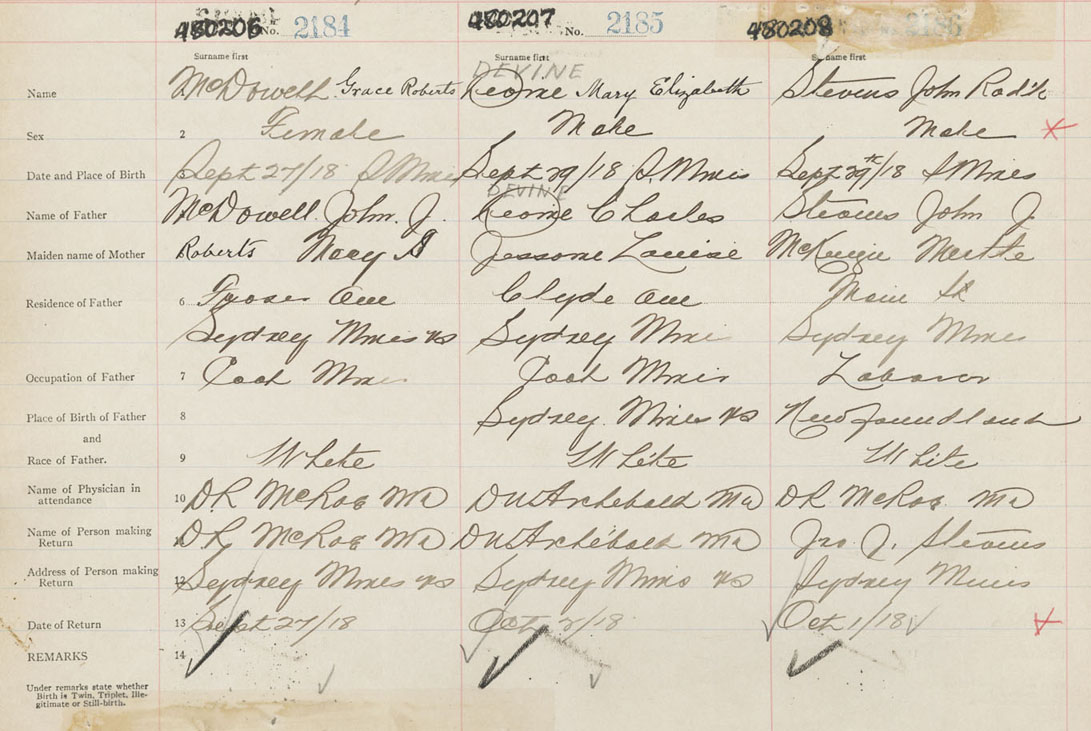 480206 No. 2184 480207 No. 2185 480208 No. 2186
Surname first Surname first Surname first
DEVINE
Name McDowell Grace Roberts Mary Elizabeth Stevens John
Sex 2 Female Male Male
Date and Place of Birth Sept 27/18 S Mines Sept 29/18 S. Mines Sept 29th/18 S Mines
DEVINE
Name of Father McDowell. John. J. Charles Stevens John J.
Maiden name of Mother Roberts Jessome Louise McKenzie
Residence of Father 6 Fraser Ave Clyde Ave Main St
Sydney Mines NS Sydney Mines Sydney Mines
Occupation of Father 7 Coal Miner Coal Miner Laborer
Place of Birth of Father 8 Sydney Mines NS Newfoundland
and
Race of Father. 9 White White White
Name of Physician in
attendance 10 DR McRae MD Archibald MD DR. McRae MD
Name of Person making
Return DR McRae MD Archibald MD Jno J. Stevens
Address of Person making
Return 12 Sydney Mines NS Sydney Mines NS Sydney Mines
Date of Return 13 Sept 27/18 Oct 2/18 Oct 1/18
REMARKS 14
Under remarks state whether
Birth is Twin, Triplet, Ille-
gitimate or Still-birth.